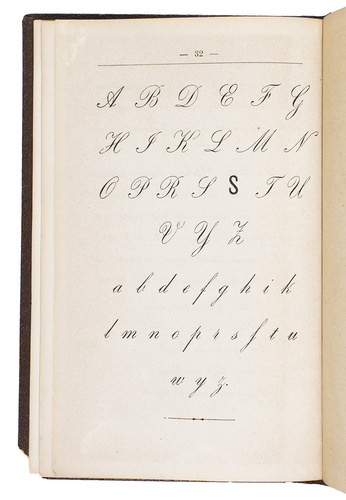 — 32 —
A B D E F G
H I K L M N
O P R S S T U
V Y Z
a b d e f g h i k
l m n o p r s ſ t u
w y z.